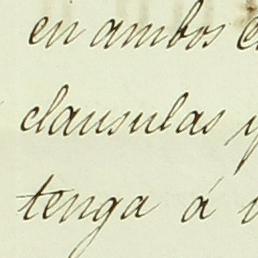 en ambos
clausulas
tenga á